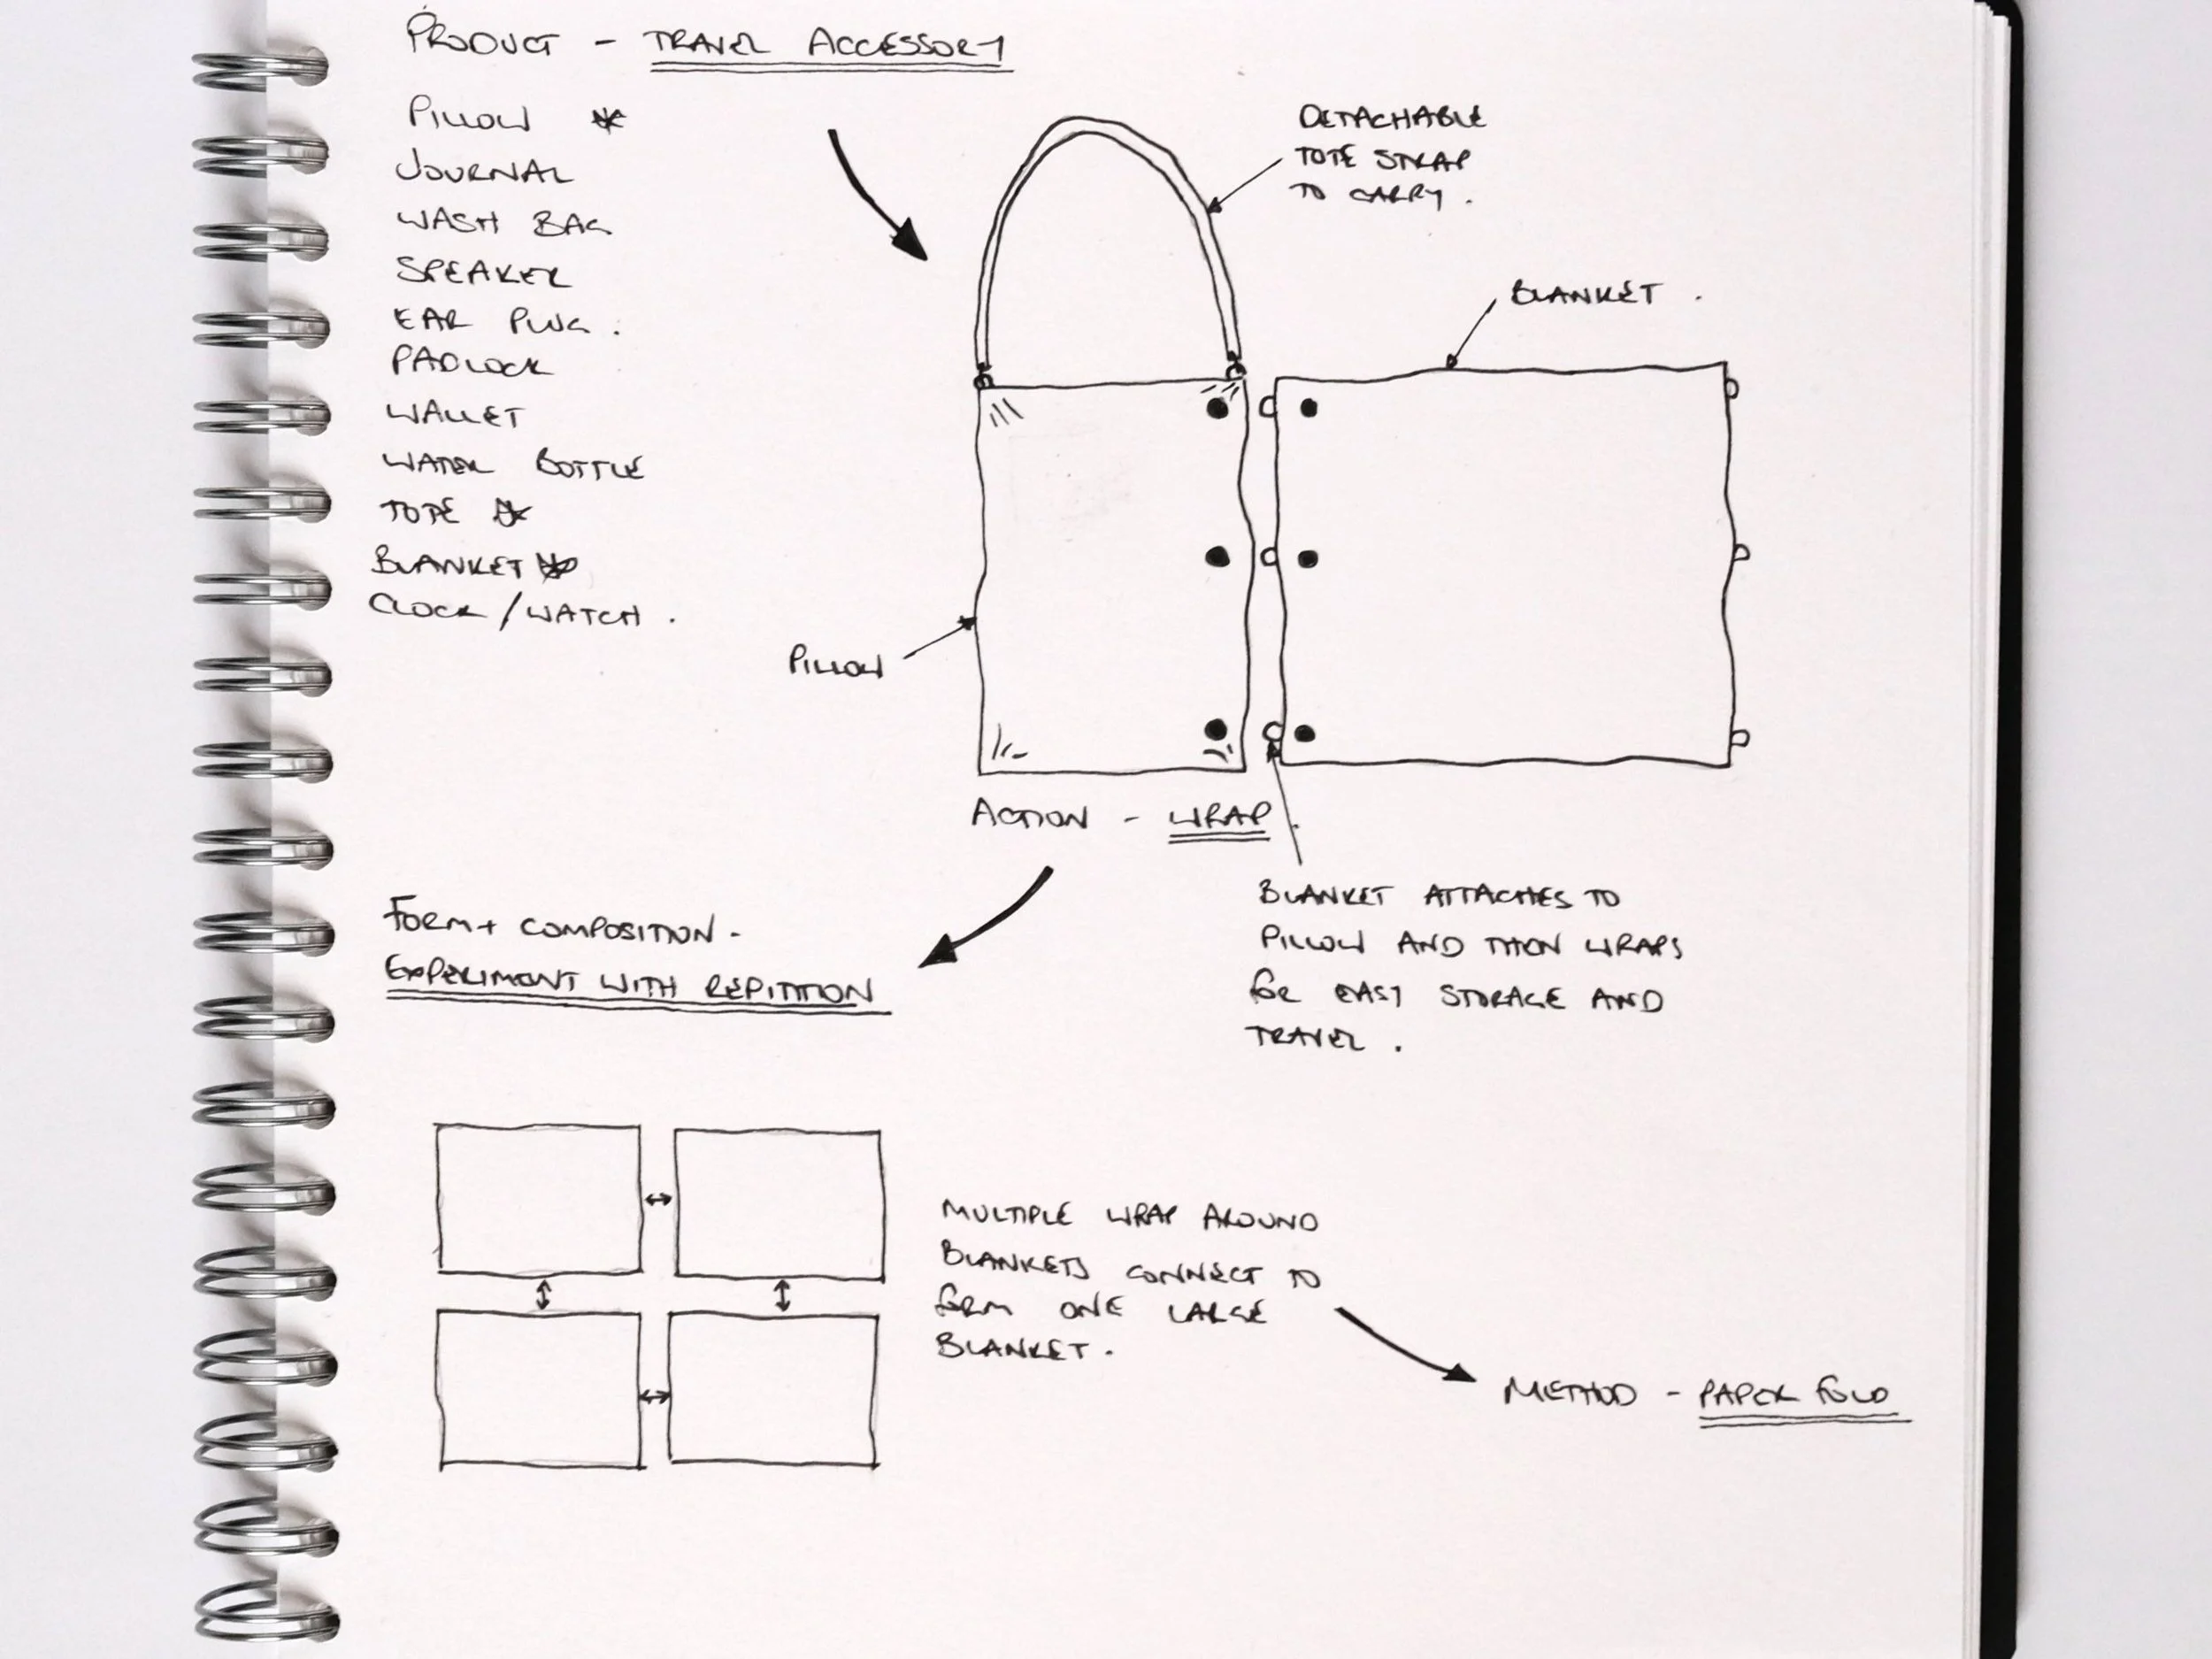 PRODUCT - TRAVEL ACCESSORY
PILLOW *
JOURNAL
WASH BAG
SPEAKER
EAR PLUG .
PADLOCK
WALLET
WATER BOTTLE
TOTE *
BLANKET *
CLOCK / WATCH .
DETACHABLE
TOTE STRAP
TO CARRY .
BLANKET .
PILLOW
ACTION - WRAP .
BLANKET ATTACHES TO
PILLOW AND THEN WRAPS
FOR EASY STORAGE AND
TRAVEL .
FORM + COMPOSITION -
EXPERIMENT WITH REPITITION
MULTIPLE WRAP AROUND
BLANKETS CONNECT TO
FORM ONE LARGE
BLANKET .
METHOD - PAPER FOLD